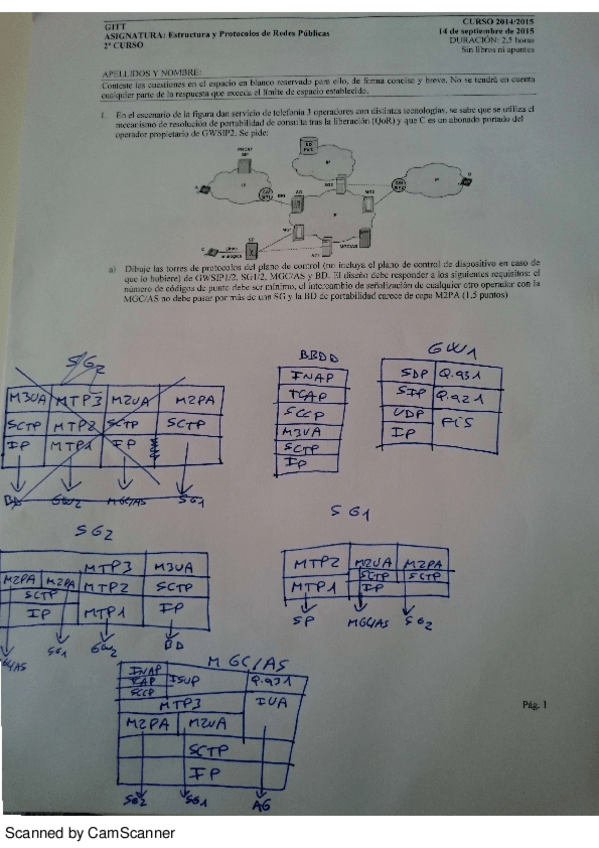 GITT
ASIGNATURA: Estructura y Protocolos de Redes Públicas
2º CURSO
CURSO 2014/2015
14 de septiembre de 2015
DURACIÓN: 2,5 horas
Sin libros ni apuntes
APELLIDOS Y NOMBRE:
Conteste las cuestiones en el espacio en blanco reservado para ello, de forma concisa y breve. No se tendrá en cuenta
cualquier parte de la respuesta que exceda el límite de espacio establecido.
1. En el escenario de la figura dan servicio de telefonía 3 operadores con distintas tecnologías, se sabe que se utiliza el
mecanismo de resolución de portabilidad de consulta tras la liberación (QoR) y que C es un abonado portado del
operador propietario de GWSIP2. Se pide:
a) Dibuje las torres de protocolos del plano de control (no incluya el plano de control de dispositivo en caso de
que lo hubiere) de GWSIP1/2, SG1/2, MGC/AS y BD. El diseño debe responder a los siguientes requisitos: el
número de códigos de punto debe ser mínimo, el intercambio de señalización de cualquier otro operador con la
MGC/AS no debe pasar por más de un SG y la BD de portabilidad carece de capa M2PA (1,5 puntos)
SG2
M3UA MTP3 M2UA M2PA
SCTP MTP2 SCTP SCTP
IP MTP1 IP
BD GW2 MGC/AS SG1
BBDD
INAP
TCAP
SCCP
M3UA
SCTP
IP
GW1
SDP Q.931
SIP Q.921
UDP
IP
SG2
MTP3 M3UA
M2PA M2PA MTP2 SCTP
SCTP
IP MTP1 IP
MGC/AS SG1 GW2 BD
SG1
MTP2 M2UA M2PA
SCTP SCTP
MTP1 IP
SP MGC/AS SG2
MGC/AS
INAP ISUP Q.931
SCCP
MTP3 IUA
M2PA M2UA
SCTP
IP
SG2 SG1 AG
Pág. 1
Scanned by CamScanner